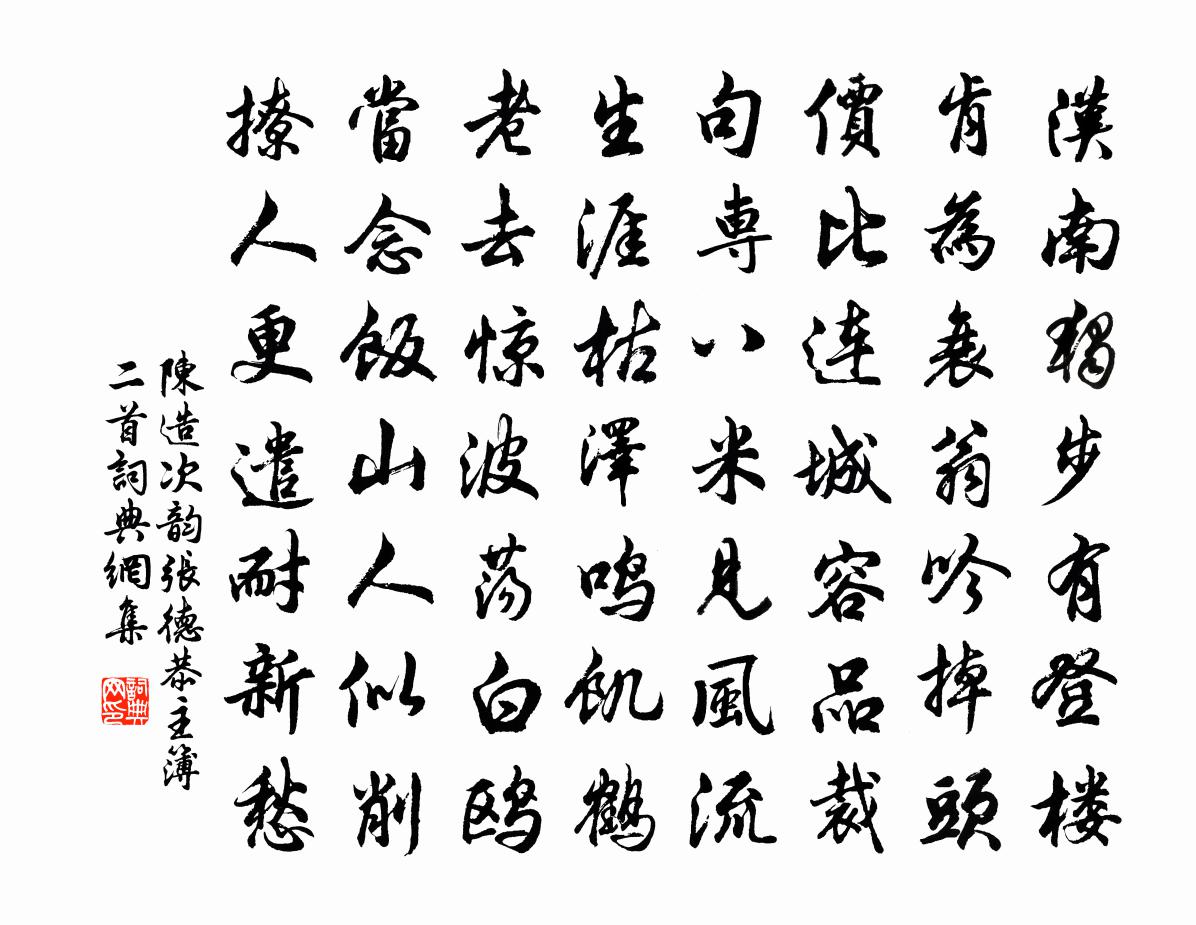 漢南獨步有登楼
肯為衰翁吟掉頭
價比连城容品裁
句専八米見風流
生涯枯澤鸣飢鶴
老去惊波荡白鸥
當念飯山人似削
撩人更遣耐新愁
陳造次韵張德恭主簿
二首詞典網集
詞典网印